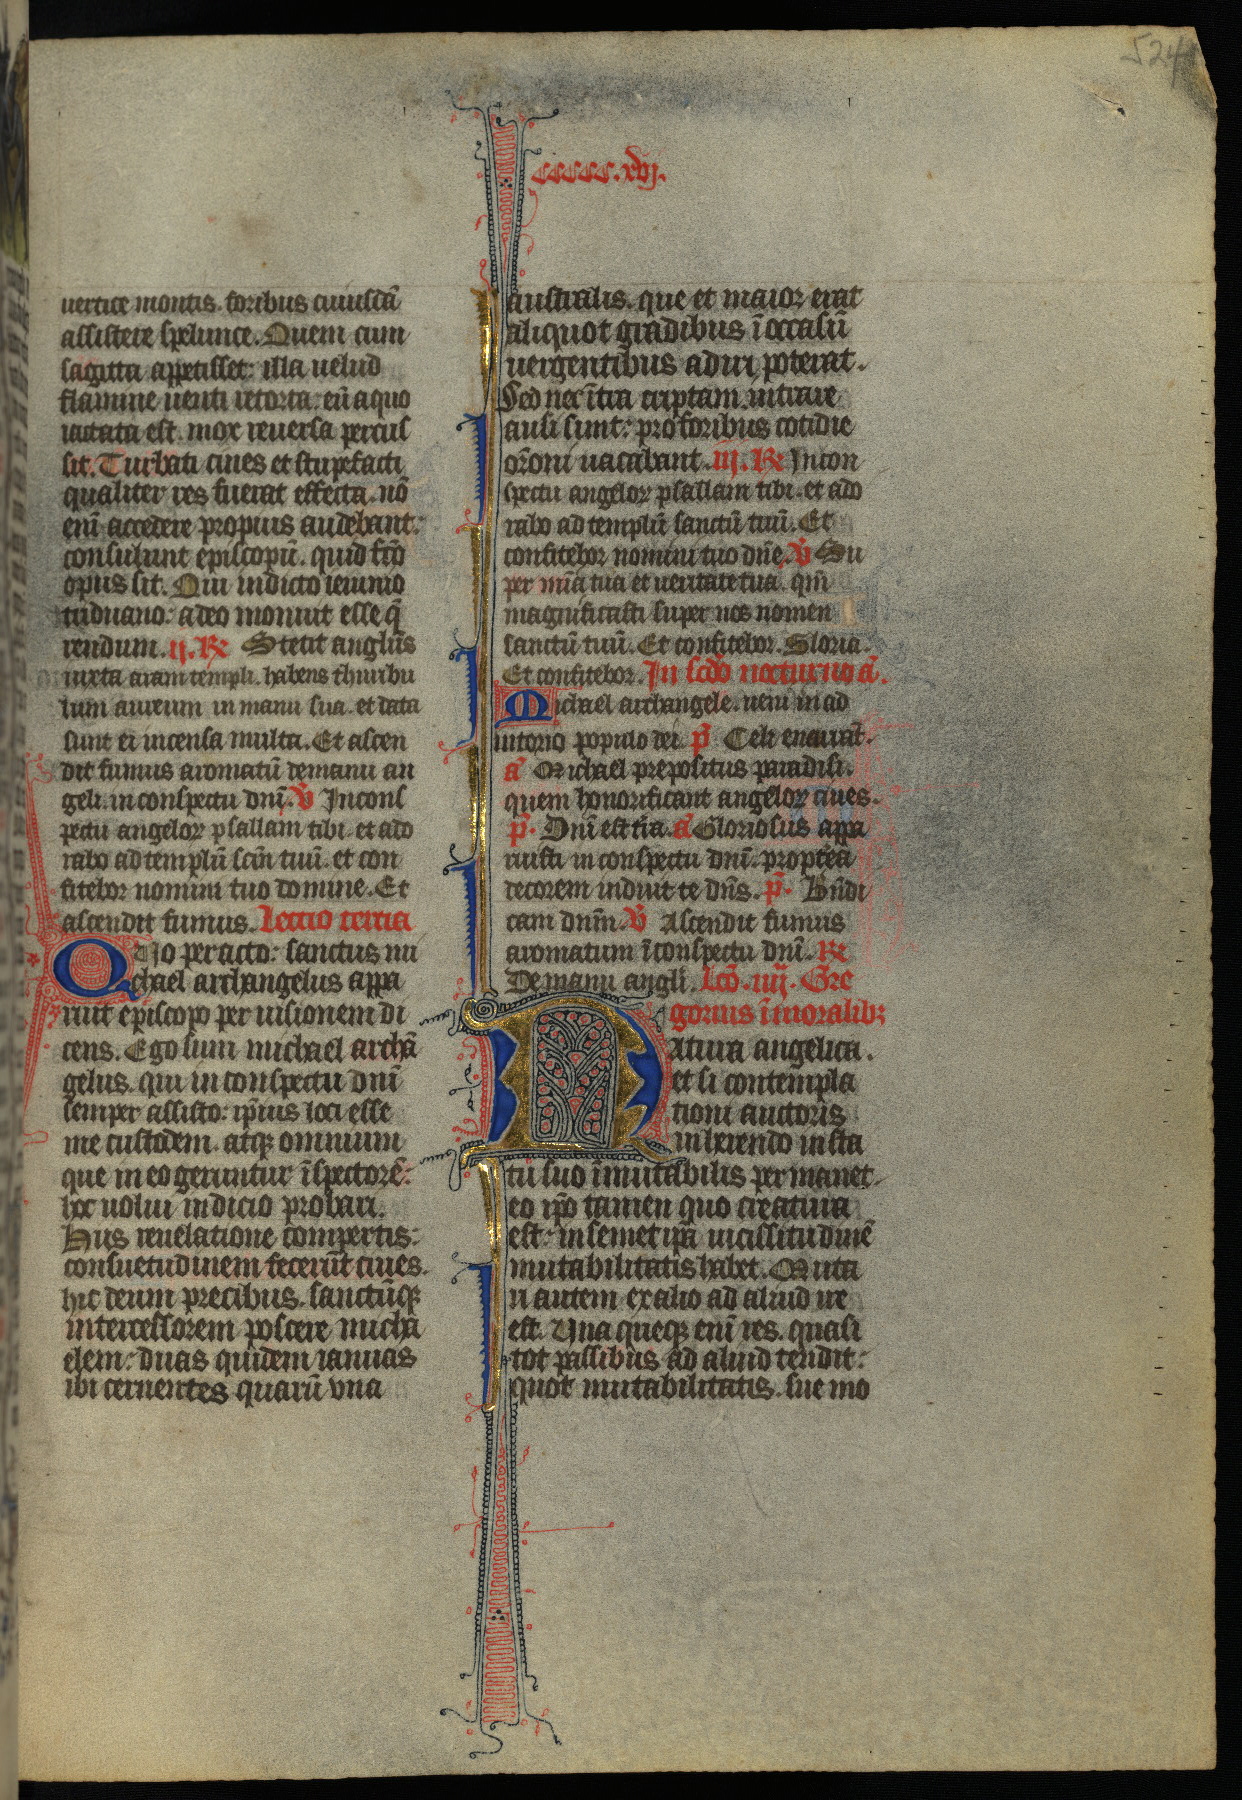 524
ccccc.xvj.
uertice montis. foribus cuiusdã
assistere spelunce. Quem cum
sagitta appetisset: illa uelud
flamine uenti retorta: eũ a quo
iactata est. mox reuersa percus
sit. Turbati ciues et stupefacti
qualiter res fuerat effecta. nõ
enĩ accedere propius audebant:
consulunt episcopũ. quid fcõ
opus sit. Qui indicto ieiunio
triduano: a deo monuit esse q̃
rendum. ij. R Stetit anglũs
iuxta aram templi. habens thuribu
lum aureum in manu sua. et data
sunt ei incensa multa. Et ascen
dit fumus aromatũ de manu an
geli. in conspectu dnĩ. V̄ In cons
pectu angelor psallam tibi. et ado
rabo ad templũ scm̄ tuũ. et con
fitebor nomini tuo domine. Et
ascendit fumus. Lectio tercia
Quo peracto: sanctus mi
chael archangelus appa
ruit episcopo per uisionem di
cens. Ego sum michael archã
gelus. qui in conspectu dnĩ
semper assisto: ip̄ius loci esse
me custodem. atq; omnium
que in eo geruntur ĩspectorẽ:
hoc uolui indicio probari.
Hiis reuelatione compertis:
consuetudinem fecerũt ciues.
hic deum precibus. sanctũq;
intercessorem poscere micha
elem: duas quidem ianuas
ibi cernentes quarũ vna
australis. que et maior erat
aliquot gradibus ĩ occasũ
uergentibus adiri poterat.
Sed nec ĩtra criptam. intrare
ausi sunt: pro foribus cotidie
or̃oni uacabant. iij. R In con
spectu angelor psallam tibi. et ado
rabo ad templũ sanctũ tuũ. Et
confitebor nomini tuo dnẽ. V̄ Su
per mĩa tua et ueritate tua. qm̃
magnificasti super nos nomen
sanctũ tuũ. Et confitebor. Gloria.
Et confitebor. In scdo nocturno a̅.
Michael archangele. ueni in ad
iutorio populo dei p̄ Celi enarrãt.
a̅ Michael prepositus paradisi.
quem honorificant angelor ciues.
p̄. Dnĩ est tr̃a. a̅ Gloriosus appa
ruisti in conspectu dnĩ. propterea
decorem induit te dns̃. p̄. Bñdi
cam dnm̃. V̄ Ascendit fumus
aromatum ĩ conspectu dnĩ. R
De manu angli̅. Lcõ. iiij. Gre
gorius ĩ moralib;
Natura angelica.
et si contempla
tioni auctoris
inherendo in sta
tu suo ĩmutabilis permanet.
eo ip̄o tamen quo creatura
est: in semet ip̄a uicissitudinẽ
mutabilitatis habet. Muta
ri autem ex alio ad aliud ire
est. Vna queq; enĩ res. quasi
tot passibus ad aliud tendit:
quot mutabilitatis. sue mo